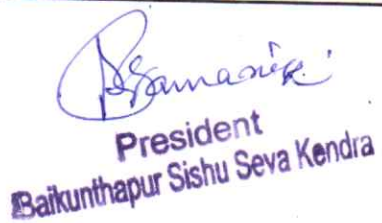 President
Baikunthapur Sishu Seva Kendra